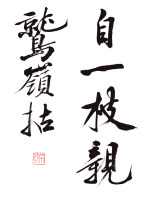 自一枝親
鷲嶺拈